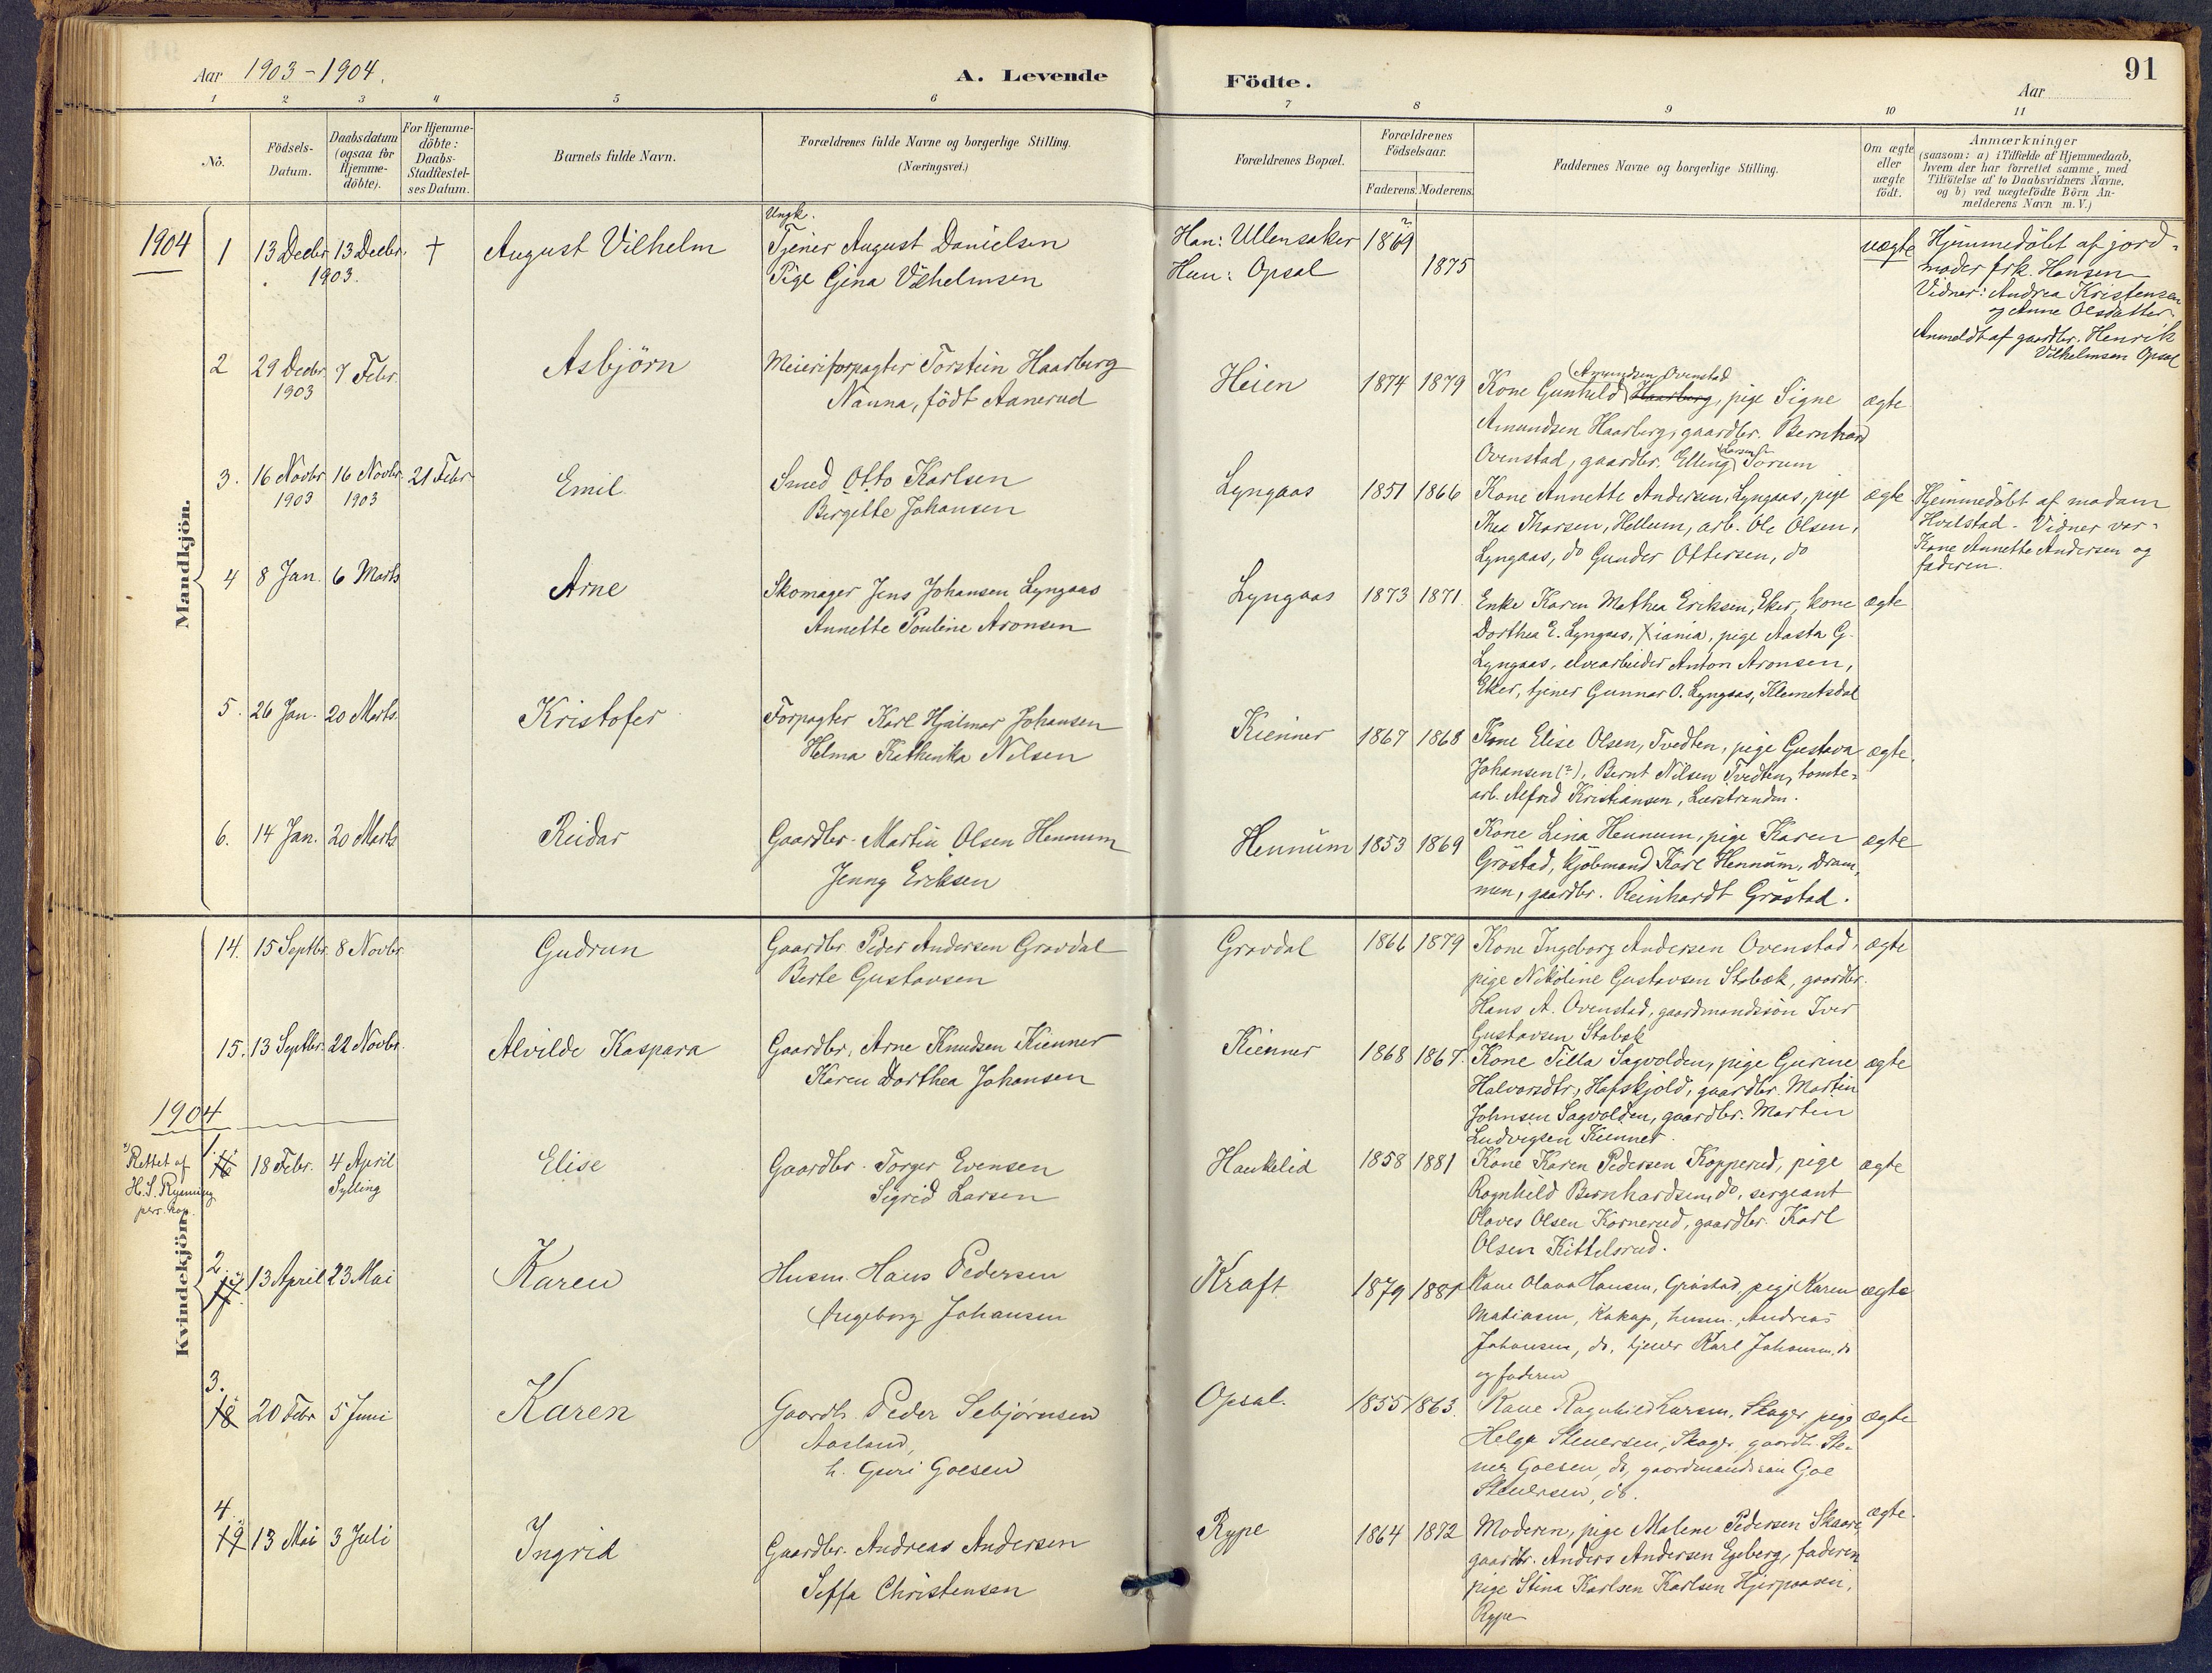 Aar 1903-1904.
A. Levende
Födte.
Aar
91
1 2 3 4 5 6 7 8 9 10 11
No.
Födsels-Datum.
Daabsdatum (ogsaa for Hjemme-döbte).
For Hjemme-döbte: Daabs-Stadfæstel-ses Datum.
Barnets fulde Navn.
Forældrenes fulde Navne og borgerlige Stilling.
(Næringsvei.)
Forældrenes Bopæl.
Forældrenes Födselsaar.
Faderens. Moderens.
Faddernes Navne og borgerlige Stilling.
Om ægte eller uægte födt.
Anmærkninger
(saasom: a) i Tilfælde af Hjemmedaab,
hvem der har forrettet samme, med
Tilföielse af to Daabsvidners Navne,
og b) ved uægtefödte Börn An-
melderens Navn m. V.)
Mandkjön.
1904
1 13 Decbr 13 Decbr. † August Vilhelm
1903.
Ungk.
Tjener August Danielsen
Pige Gina Vilhelmsen
Han: Ullensaker 1869
Hun: Opsal 1875
uægte
Hjemmedöbt af jord-
moder frk. Hansen
Vidner: Andrea Kristensen
og Anne Olsdatter
Anmeldt af gaardbr. Henrik
Vilhelmsen Opsal
2 29 Decbr 1903 7 Febr. Asbjörn
Meieriforpagter Torstein Haarberg
Nanna, födt Aanerud
Heien 1874 1879
(Amundsen Ovenstad
Kone Gunhild Haarberg, pige Signe
Amundsen Haarberg, gaardbr. Bernhard
Ovenstad, gaardbr. Elling Larsen Torum
ægte
3. 16 Novbr 1903 16 Novbr. 1903 21 Febr Emil
Smed Otto Karlsen
Birgette Johansen
Lyngaas 1851 1866
Kone Annette Andersen, Lyngaas, pige
Thea Thorsen, Hellum, arb. Ole Olsen,
Lyngaas, do Gunder Ottersen, do
ægte
Hjemmedöbt af madam
Hvalstad - Vidner var-
Kone Annette Andersen og
faderen.
4 8 Jan. 6 Marts Arne
Skomager Jens Johansen Lyngaas
Annette Pouline Aronsen
Lyngaas 1873 1871
Enke Karen Mathea Eriksen, Eker, kone
Dorthea E. Lyngaas, Xiania, pige Aasta G.
Lyngaas, elvearbeider Anton Aronsen,
Eker, tjener Gunnar O. Lyngaas, Klemetsdal
ægte
5. 26 Jan. 20 Marts. Kristofer
Forpagter Karl Hjalmar Johansen
Helma Kathinka Nilsen
Kienner 1867 1868
Kone Elise Olsen, Tvedten, pige Gustava
Johansen (?), Bernt Nilsen Tvedten, tomte-
arb. Alfred Kristiansen, Lierstranden.
ægte.
6. 14 Jan. 20 Marts Reidar
Gaardbr. Martin Olsen Hennum
Jenny Eriksen
Hennum 1853 1869
Kone Lina Hennum, pige Karen
Gröstad, kjöbmand Karl Hennum, Dram-
men, gaardbr. Reinhardt Gröstad.
ægte
Kvindekjön.
14. 15 Septbr. 8 Novbr. Gudrun
Gaardbr. Peder Andersen Gravdal
Berte Gustavsen
Gravdal 1866 1879
Kone Ingeborg Andersen Ovenstad,
pige Nikoline Gustavsen Stabæk, gaardbr.
Hans A. Ovenstad, gaardmandssön Iver
Gustavsen Stabæk
ægte
15. 13 Septbr. 22 Novbr. Alvilde Kaspara
Gaardbr. Arne Knudsen Kienner
Karen Dorthea Johansen
Kienner 1868 1867.
Kone Tilla Sagvolden, pige Gurine
Halvorsdtr., Hafskjold, gaardbr. Martin
Johnsen Sagvolden, gaardbr. Martin
Ludvigsen Kienner.
ægte
1904
Rettet af
H. S. Rynning
pers. kap.
1. 16 18 Febr. 4 April Sylling Elise
Gaardbr. Torger Evensen
Sigrid Larsen
Haukelid 1858 1881
Kone Karen Pedersen Kopperud, pige
Ragnhild Bernhardsen, do, sergeant
Olaves Olsen Kornerud, gaardbr. Karl
Olsen Kittelsrud.
ægte
2. 17. 13 April 23 Mai Karen
Husm. Hans Pedersen
Ingeborg Johansen
Kraft 1879 1881
Kone Olava Hansen, Gröstad, pige Karen
Matiasen, husm. Andreas
Johansen, do, tjener Karl Johansen, do
og faderen
ægte
3. 18 20 Febr 5 Juni Karen
Gaardb. Peder Sebjørnsen
Aasland,
h. Guri Goesen
Opsal. 1855 1863.
Kone Ragnhild Larsen, Skager, pige
Helga Stenersen, Skager, gaardb. Ste-
ner Goesen, do, gaardmandssøn Goe
Stenersen, do.
ægte
4. 19 13 Mai 3 Juli Ingrid
Gaardbr. Andreas Andersen
Seffa Christensen
Rype 1864 1872
Moderen, pige Malene Pedersen Skaare
gaardbr. Anders Andersen Egeberg, faderen
pige Stina Karlsen Karlsen
Rype
ægte.